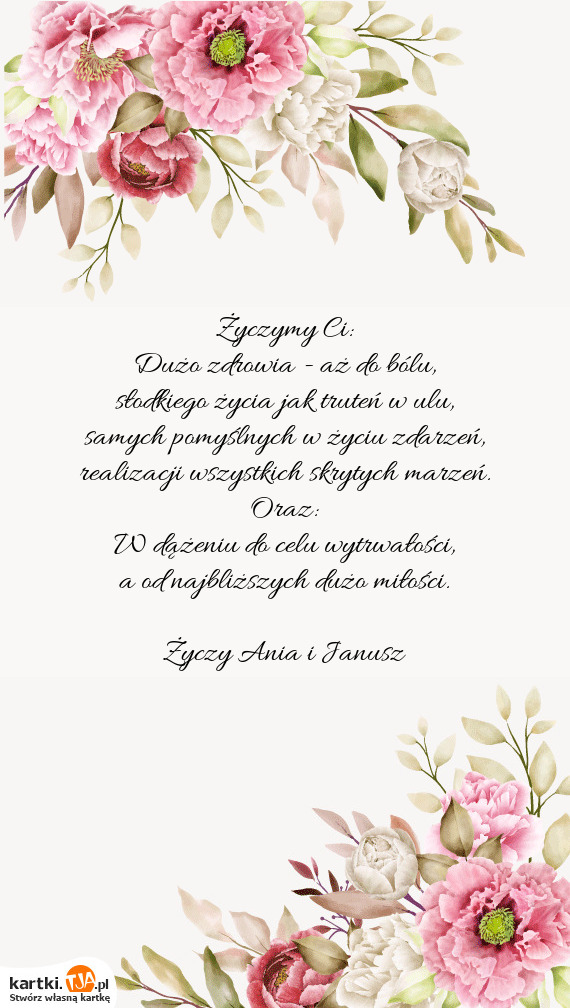 Życzymy Ci:
Dużo zdrowia - aż do bólu,
słodkiego życia jak truteń w ulu,
samych pomyślnych w życiu zdarzeń,
realizacji wszystkich skrytych marzeń.
Oraz:
W dążeniu do celu wytrwałości,
a od najbliższych dużo miłości.
Życzy Ania i Janusz
kartki.TJA.pl
Stwórz własną kartkę